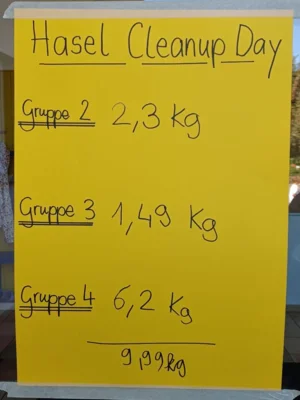 Hasel Cleanup Day
Gruppe 2 2,3 Kg
Gruppe 3 1,49 Kg
Gruppe 4 6,2 Kg
9,99kg